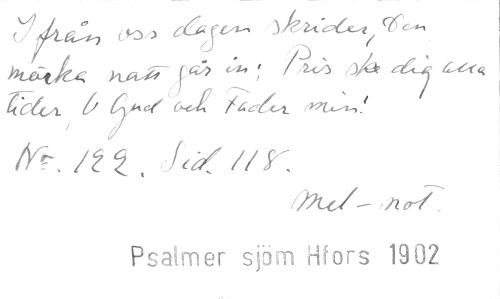 Ifrån oss dagen skrider, Den
mörka natt går in; Pris ske dig alla
tider, O Gud och Fader min!
No. 122. Sid. 118.
Mel-not.
Psalmer sjöm Hfors 1902